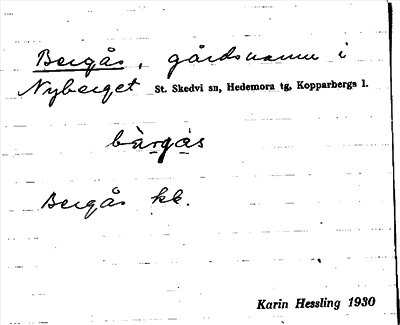 Bergås, gårdsnamn i
Nyberget St. Skedvi sn, Hedemora tg, Kopparbergs l.
bàrgàs
Bergås kb.
Karin Hessling 1930